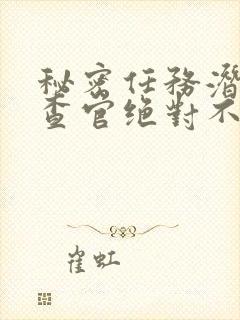 秘密任務潛
查官绝對不
崔虹